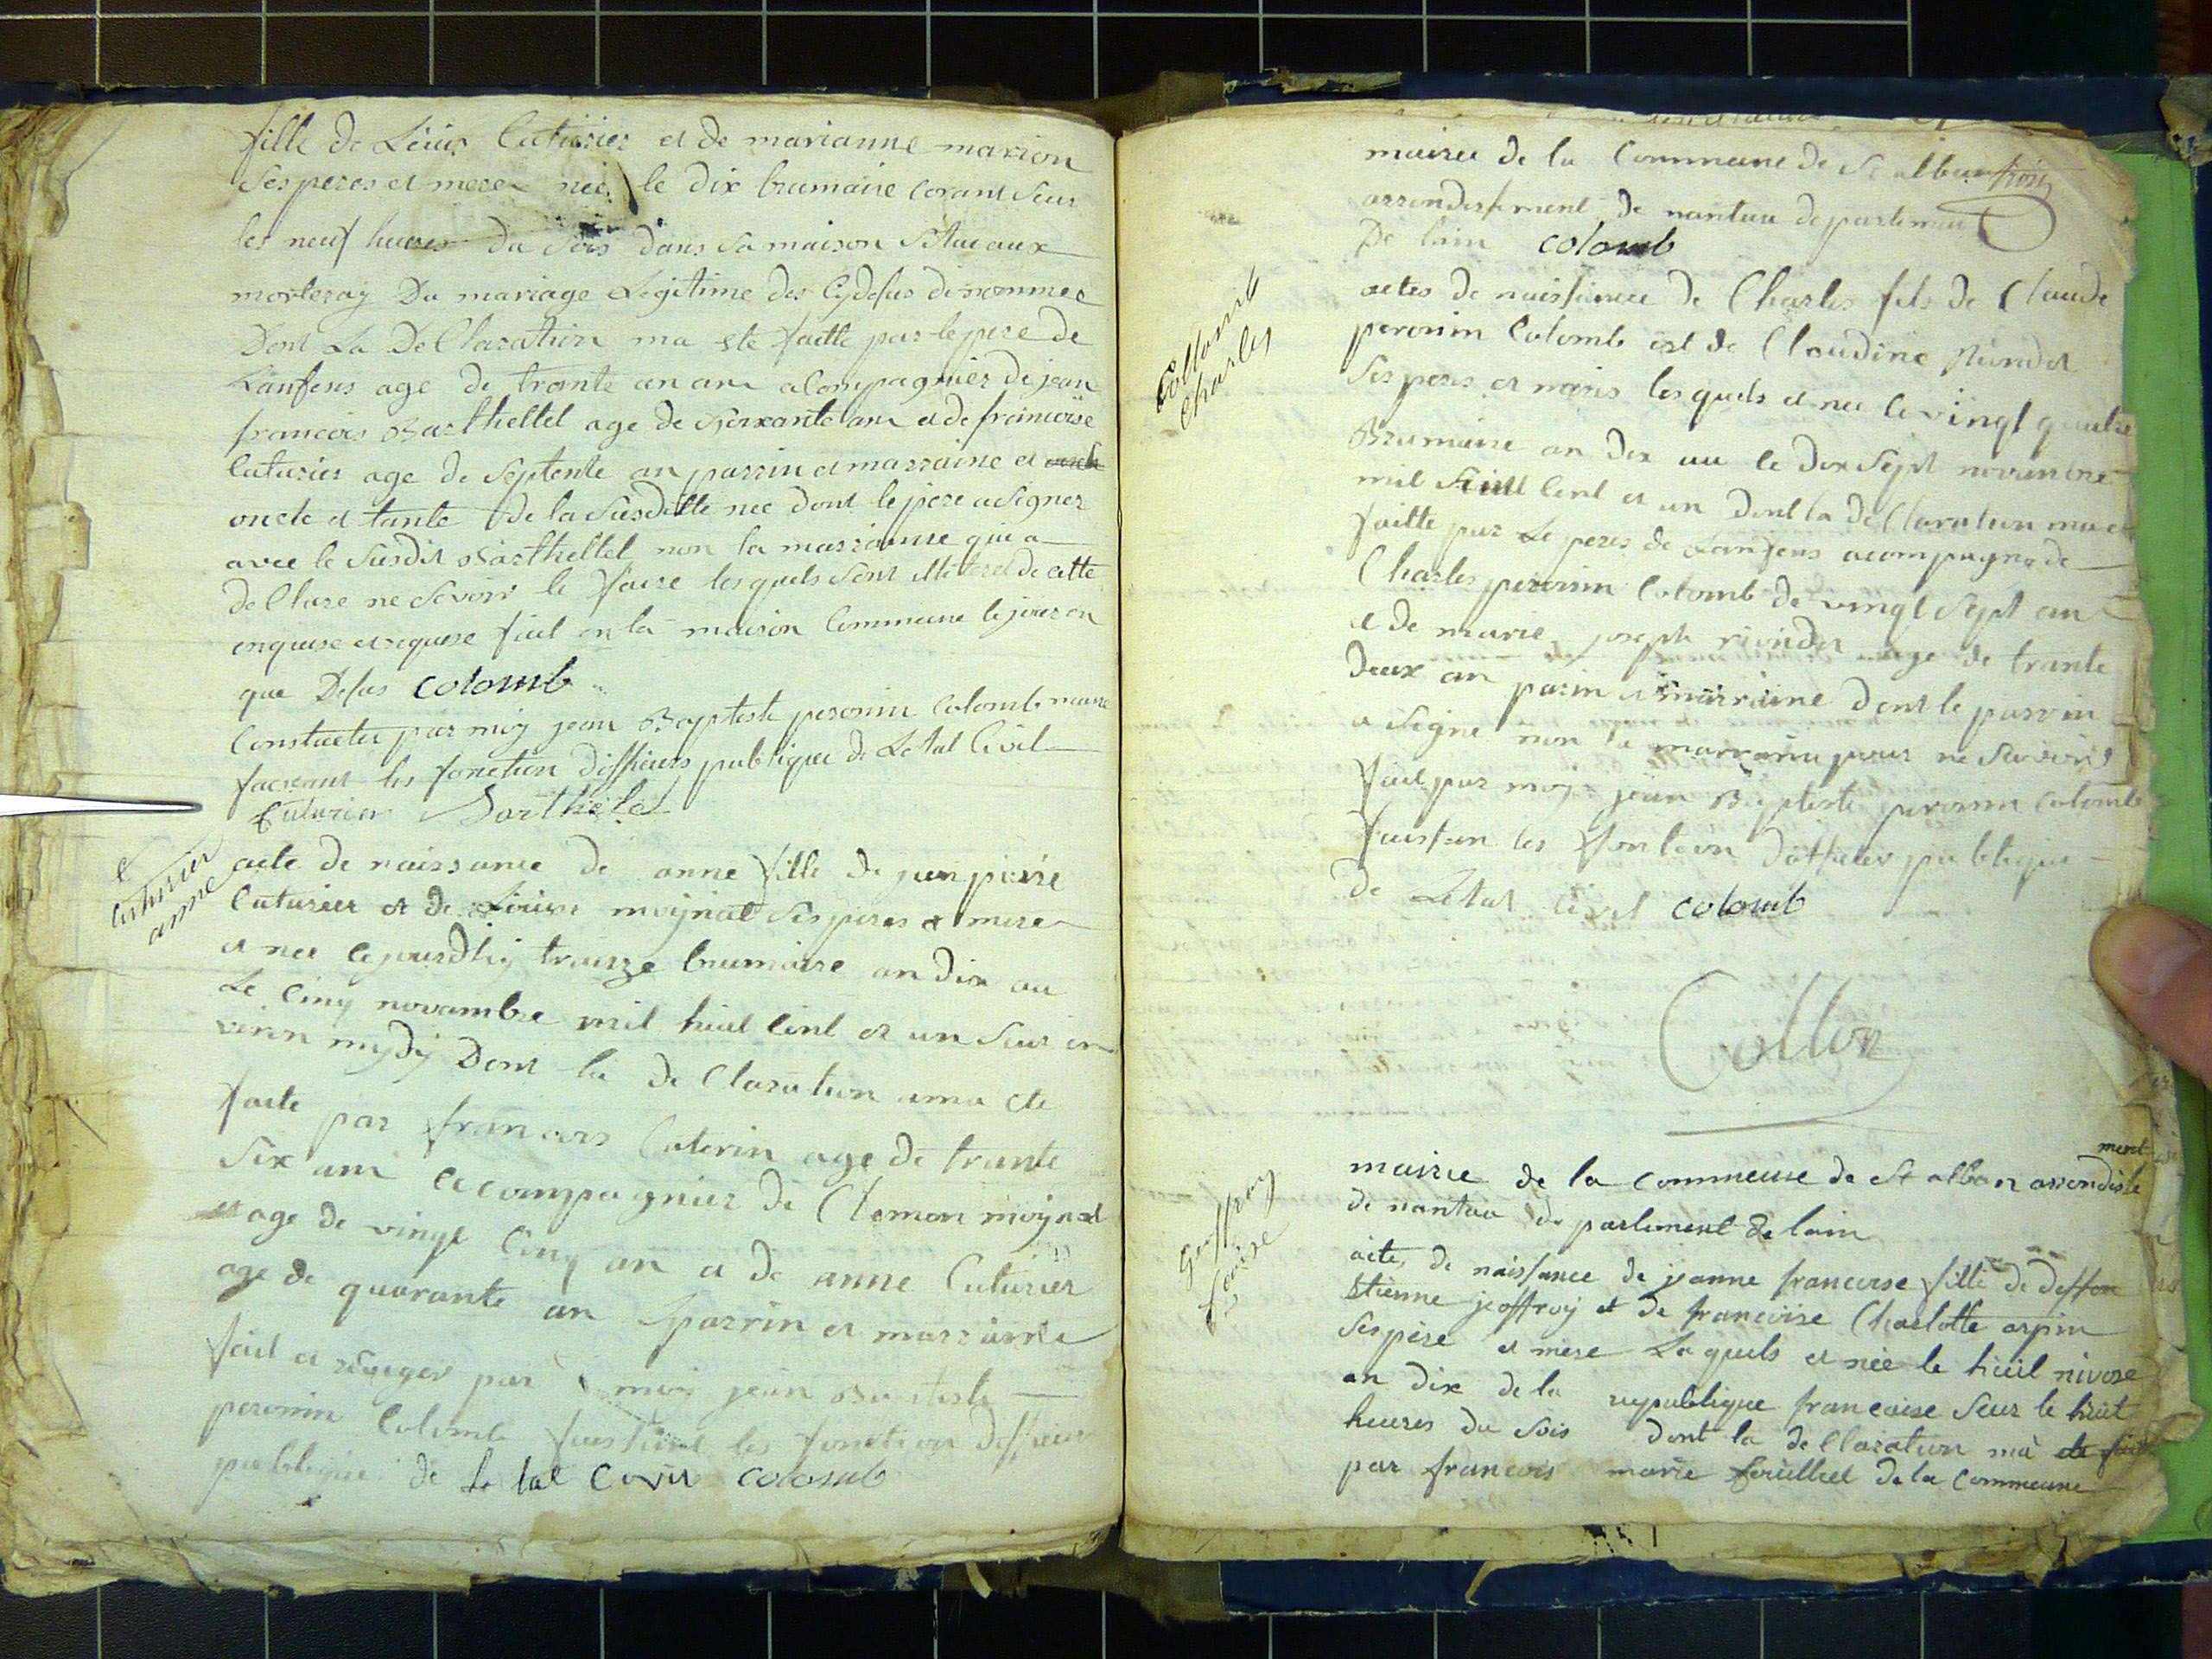 fille de Leuis Cuturier et de marianne marion
Ses peres et mere nee le dix brumaire corant Seur
les neuf heures du Sois dans Sa maison Situe aux
morteray Du mariage Legitime des Cydesus denommee
Dont La DeClaration ma ete faitte par le pere de
Lanfens age de trante an ans acompagnier de jean
francois Barthellet age de Soixante an et de francoise
Cuturier age de Septente an parrin et marraine et
oncle et tante de la Susditte nee dont le pere a Signer
avec le Susdit Barthellet non la marraine qui a
deClare ne Sevoir le faire les quels Sont de cette
enquise et requise fait en la maison Commune le jour en
que Desus colomb
Constater par moy jean Baptiste peronin Colomb maire
faiseant les fonction dofficiers publique de Letat Civil
Cuturier Barthelet
Cuturier
anne
acte de naissance de anne fille de jean pierre
Cuturier et de Louise moynat Ses peres et mere
et nee cejourdhy trauze brumaire an dix ou
Le Cinq novambre mil huit Cent et un Seur en
viron mydy Dont la de Claration ama ete
faite par francois Caterin age de trante
Six ans acompagnier de Clemon moynat
et age de vingt Cinq an et de anne Cuturier
age de quarante an parrin et marraine
fait et rediger par moi jean Baptiste
peronin Colomb faisient les fonction dofficier
publique de Le tat Civil colomb
mairee de la Commune de St alban
arrondissement de nantua departement
De lain colomb
Collomb
Charles
actes de naissance de Charles fils de Claude
peronin Colomb et de Claudine Riondet
Ses peres et meres les quels et nee le vingt quatre
Brumaire an dix ou le dix Sept novembre
mil huit Cent et un Dont la deClaration ma e
faitte par Le peres de Lanfens acompagne de
Charles peronin Colomb de vingt Sept an
et de marie joseph riondet age de trante
deux an parin et marraine dont le parrin
a Signe non la marraine pour ne Savoir
fait par moy jean Baptiste peronin Colomb
faisean les fontion dofficier publique
de Letat Civil colomb
Collon
Geoffroy
Louise
ment
mairie de la commeune de St alban arrondisse
de nantua departement de lain
acte de naissance de jeanne francoise fille de deffon
Etienne jeoffroy et de francoise Charlotte arpin
Ses père et mere La quels et née le huit nivose
an dix de la republique francaise Seur le huit
heures du Sois dont la deClaration ma ete fait
par francois marie de la Commeune